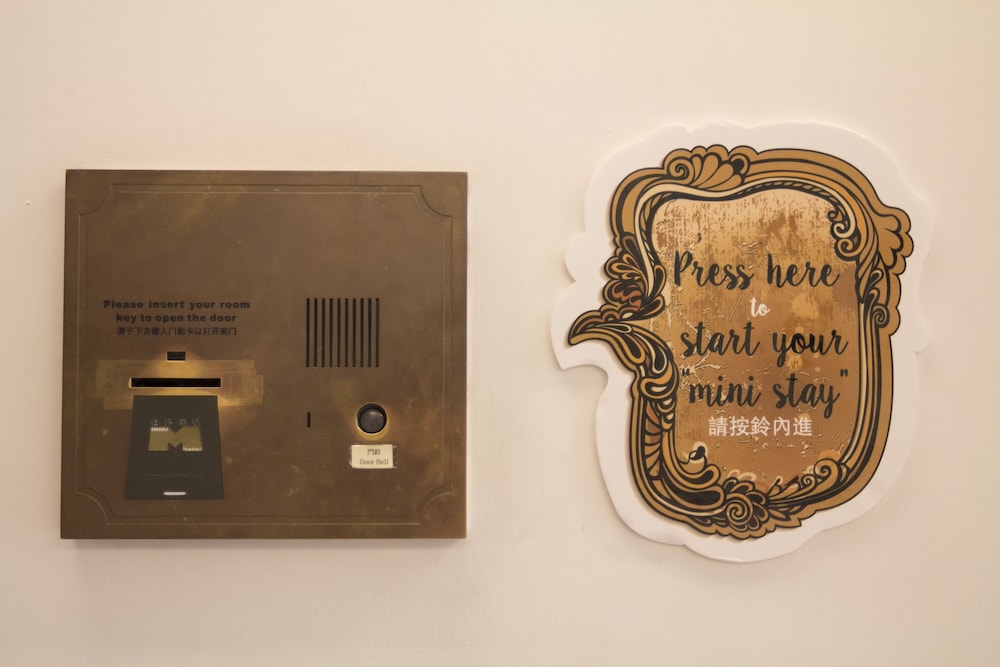 Please insert your room
key to open the door
请于下方插入门匙卡以打开前门
mini
M
hotel
门铃
Door Bell
Press here
to
start your
"mini stay"
請按鈴內進